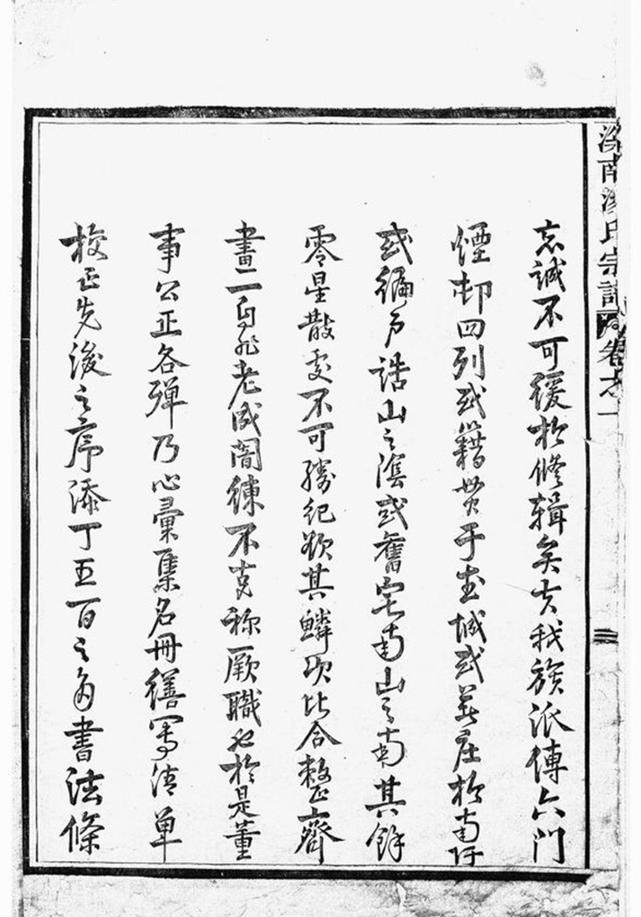 氏宗譜 卷之一
忘誠不可緩於修輯矣夫我族派傳六門
煙邨四列或籍貫于武城或美莊於南阡
或編戶誥山之陰或舊宅南山之南其餘
零星散處不可勝紀欲其鱗次比合整齊
畫一自非老成閣練不克稱厥職也於是董
事公正各殫乃心彙集名冊繕寫清單
挍正先後之序添丁五百之多書法條